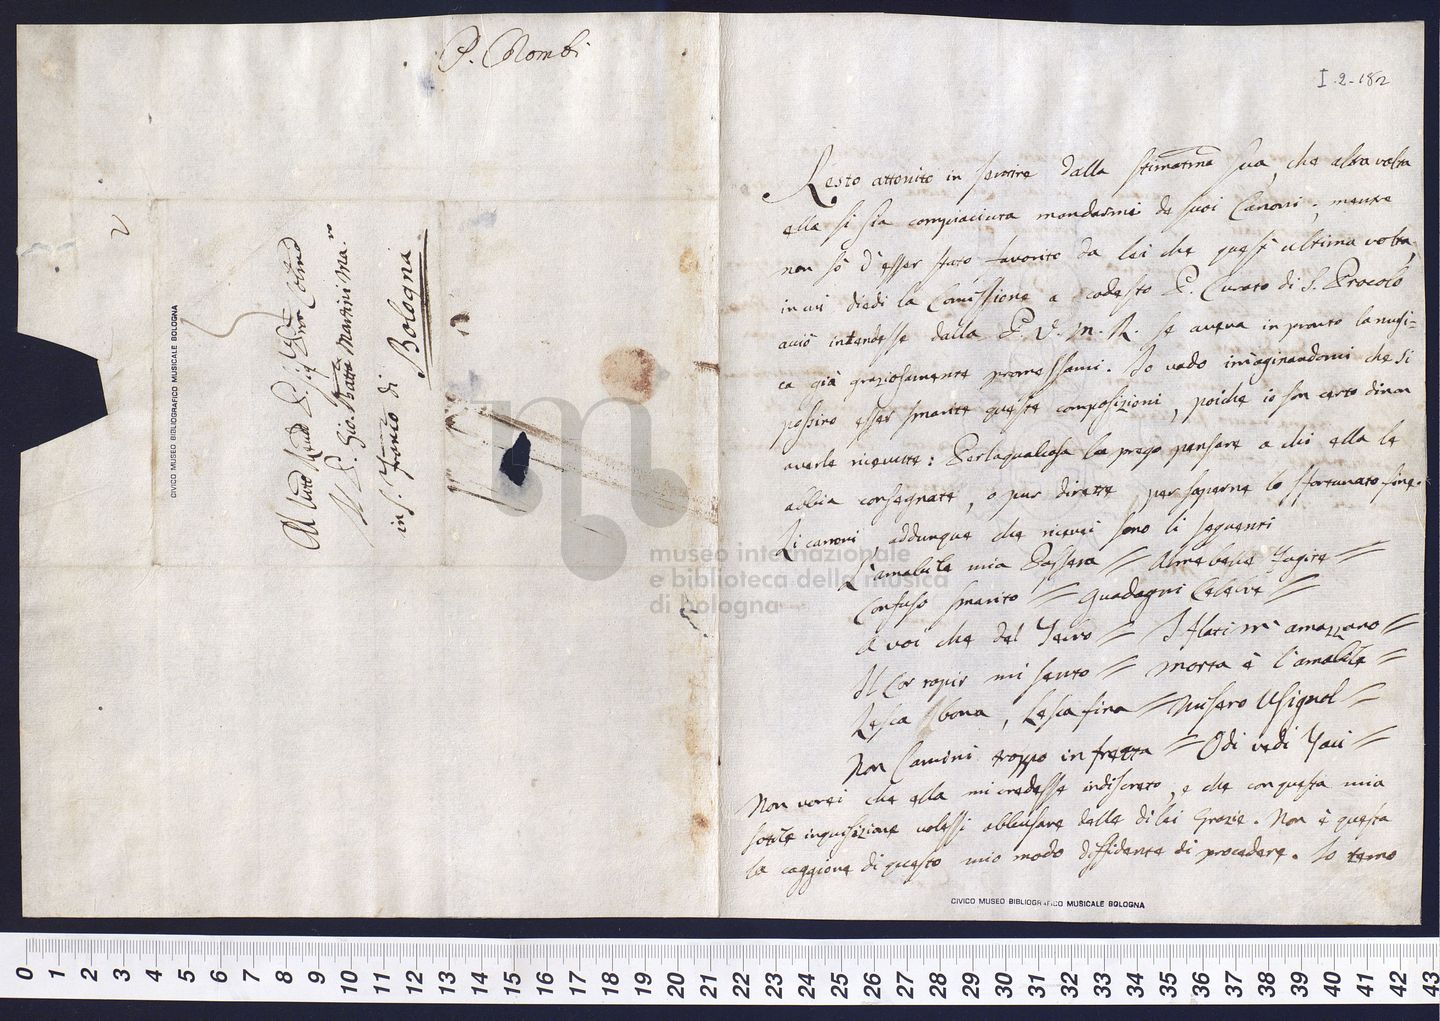 P. Colombi
I. 2 - 182
Al Molto Revdo P.
Il P. Gio: Batta Martini Ma.ro
in S. Franco di
Bologna
CIVICO MUSEO BIBLIOGRAFICO MUSICALE BOLOGNA
museo internazionale
e biblioteca della musica
di bologna
Resto attonito in sentire dalla stimatma Sua, che altra volta
ella si sia compiaciuta mandarmi de suoi Canoni; mentre
non sò d'esser stato favorito da lei che quest'ultima volta,
in cui diedi la Comissione a codesto P. Curato di S. Procolo
acciò intendesse dalla P. V. M. R. se aveva in pronto la musi=
ca già graziosamente promessami. Io vado imaginandomi che si
possino esser smarite queste composizioni, poiche io son certo di non
averle ricevute: Perlaqualcosa la prego pensare a chi ella le
abbia consegnate, o pur dirette, per saperne lo sfortunato fine.
Li canoni addunque che ricevei sono li seguenti
L'amabile mia Passera = Almebelle fugite =
Confuso smarito = Guadagni Celebre =
A voi che del = I flati m'amazzano =
Il Cor rapir mi sento = Morta è l'amabile =
L'esca bona, l'esca fina = Misero Usignol =
Non Camini troppo in frezza = Odi vedi Taci =
Non vorei che ella mi credesse indiscreto, e che con questa mia
sotile inquisizione volessi abbusare delle di lei Grazie. Non è questa
la caggione di questo mio modo diffidente di procedere. Io temo
CIVICO MUSEO BIBLIOGRAFICO MUSICALE BOLOGNA
0 1 2 3 4 5 6 7 8 9 10 11 12 13 14 15 16 17 18 19 20 21 22 23 24 25 26 27 28 29 30 31 32 33 34 35 36 37 38 39 40 41 42 43